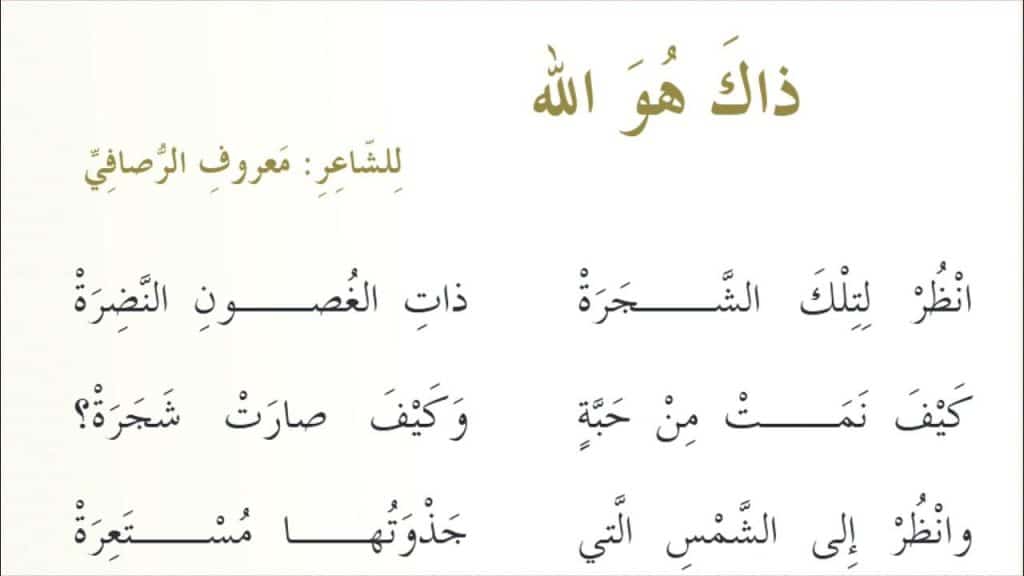 ذاكَ هُوَ الله
لِلشّاعِرِ: مَعروفِ الرُّصافِيِّ
انْظُرْ لِتِلْكَ الشَّـــــجَرَةْ ذاتِ الغُصـــــونِ النَّضِرَةْ
كَيْفَ نَمَـــــتْ مِنْ حَبَّةٍ وَكَيْفَ صارَتْ شَجَرَةْ؟
وانْظُرْ إِلى الشَّمْسِ الَّتي جَذْوَتُهـــــا مُسْـــــتَعِرَةْ